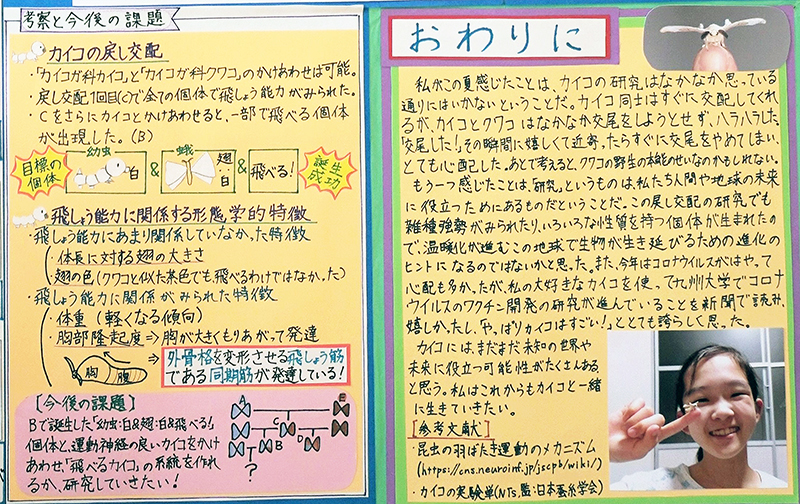 考察と今後の課題
カイコの戻し交配
・「カイコガ科カイコ」と「カイコガ科クワコ」のかけあわせは可能。
・戻し交配1回目(c)で全ての個体で飛しょう能力がみられた。
・Cをさらにカイコとかけあわせると、一部で飛べる個体
が出現した。(B)
目標の
個体
幼虫
:白
&
蛾
翅
:
白
&
飛べる!
誕生
成功
飛しょう能力に関係する形態学的特徴
・飛しょう能力にあまり関係していなかった特徴
・体長に対する翅の大きさ
・翅の色(クワコと似た茶色でも飛べるわけではなかった)
・飛しょう能力に関係がみられた特徴
・体重(軽くなる傾向)
・胸部隆起度⇒胸が大きくもりあがって発達
胸 腹
外骨格を変形させる飛しょう筋
である同期筋が発達している!
【今後の課題】
Bで誕生した「幼虫:白&翅:白&飛べる」
個体と、運動神経の良いカイコをかけ
あわせ、「飛べるカイコ」の系統を作れ
るか、研究していきたい!
A E
C
B D
?
おわりに
私がこの夏感じたことは、カイコの研究はなかなか思っている
通りにはいかないということだ。カイコ同士はすぐに交配してくれ
るが、カイコとクワコはなかなか交尾をしようとせず、ハラハラした。
「交尾した!」その瞬間に嬉しくて近寄ったらすぐに交尾をやめてしまい、
とても心配した。あとで考えると、クワコの野生の本能のせいなのかもしれない。
もう一つ感じたことは、「研究」というものは、私たち人間や地球の未来
に役立つためにあるものだということだ。この戻し交配の研究でも
雑種強勢がみられたり、いろいろな性質を持つ個体が生まれたの
で、温暖化が進むこの地球で生物が生き延びるための進化の
ヒントになるのではないかと思った。また、今年はコロナウイルスがはやって
心配も多かったが、私の大好きなカイコを使って九州大学でコロナ
ウイルスのワクチン開発の研究が進んでいることを新聞で読み、
嬉しかったし、「やっぱりカイコはすごい!」ととても誇らしく思った。
カイコには、まだまだ未知の世界や
未来に役立つ可能性がたくさんある
と思う。私はこれからもカイコと一緒
に生きていきたい。
【参考文献】
・昆虫の羽ばたき運動のメカニズム
(https://cns.neuroinf.jp/jscpb/wiki/)
・カイコの実験単(NTS,監:日本蚕糸学会)